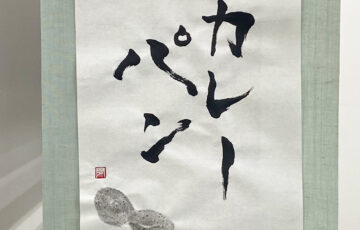 カレー
パン